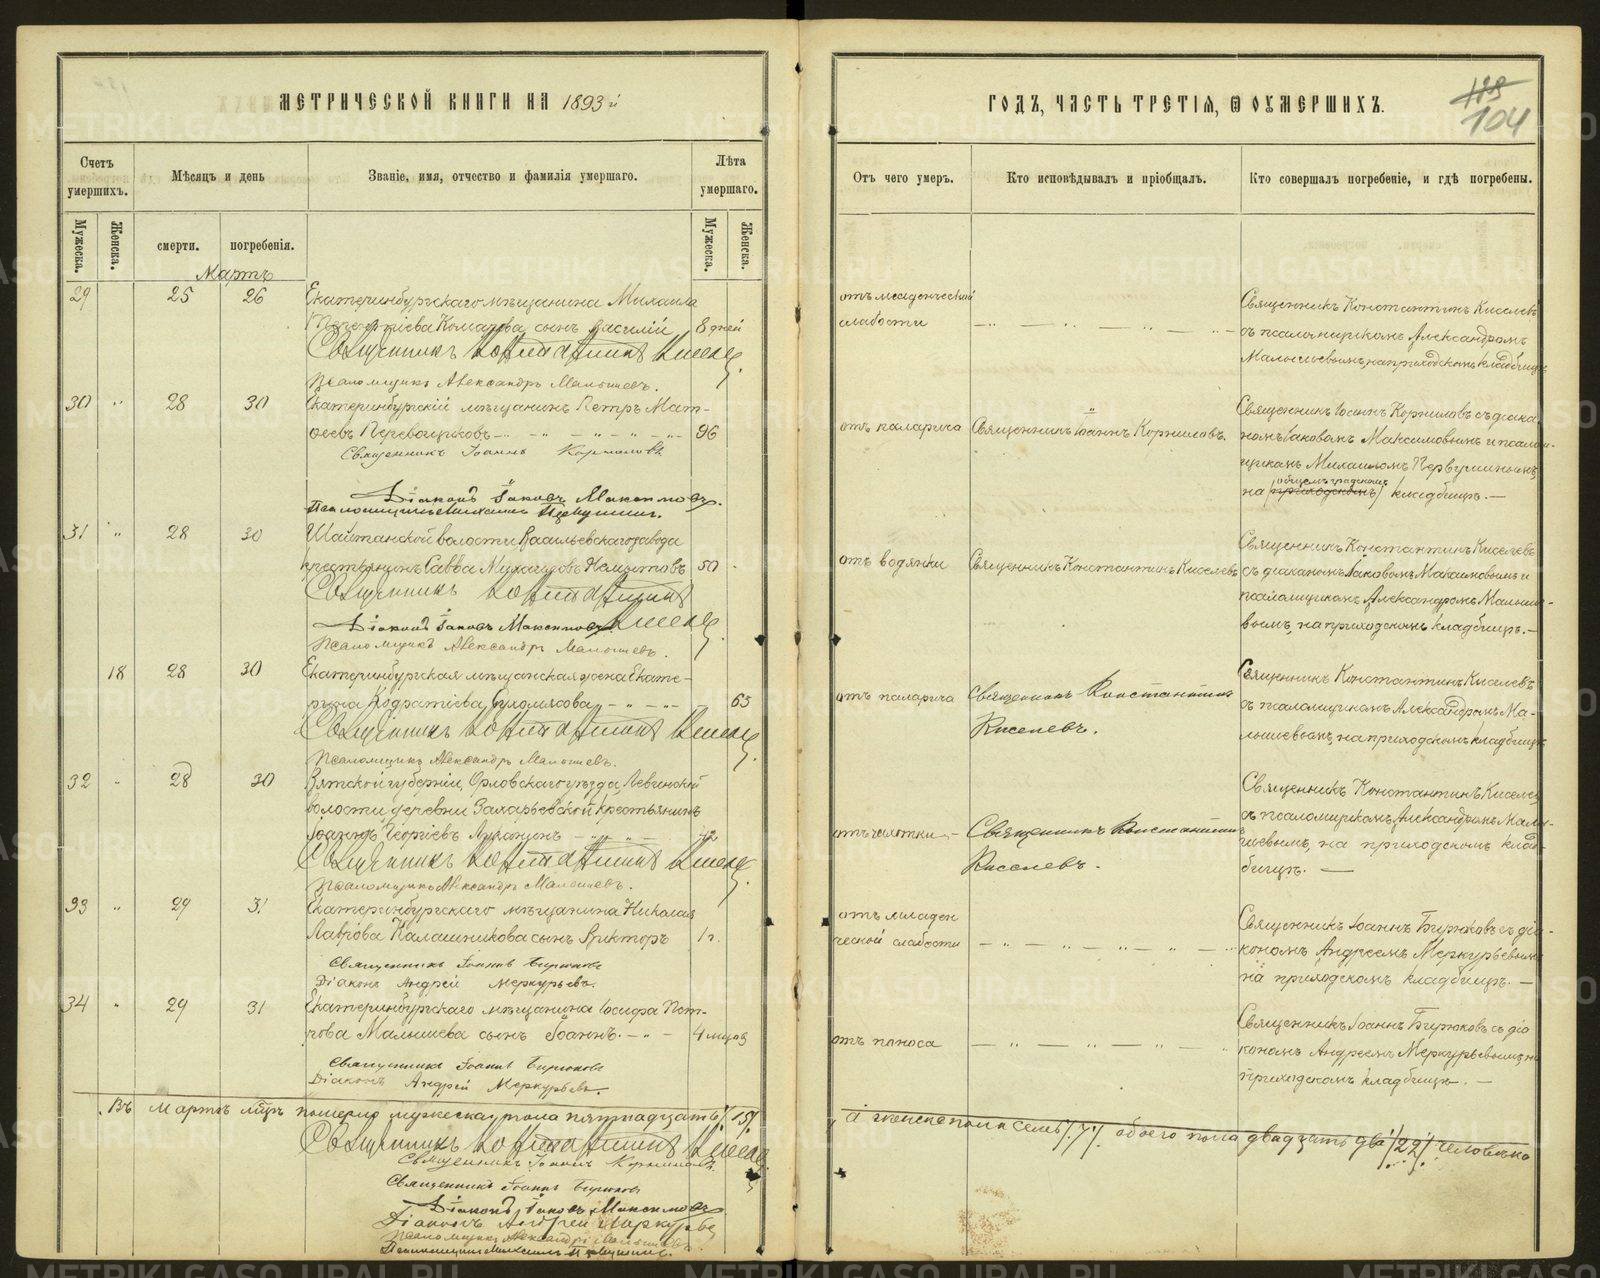 МЕТРИЧЕСКОЙ КНИГИ НА 1893 й
ГОДЪ, ЧАСТЬ ТРЕТІЯ, Ѿ ОУМЕРШИХЪ.
118
104
Счетъ умершихъ.
Мѣсяцъ и день
Званіе, имя, отчество и фамилія умершаго.
Лѣта умершаго.
Отъ чего умеръ.
Кто исповѣдывалъ и пріобщалъ.
Кто совершалъ погребеніе, и гдѣ погребены.
Мужеска.
Женска.
смерти.
погребенія.
Мужеска.
Женска.
Мартъ
29 25 26 Екатеринбургскаго мѣщанина Михаила
Комарова сынъ Василій 8 дней
Священникъ Константинъ Киселевъ
Псаломщикъ Александръ Малышевъ.
отъ младенческой
слабости
Священникъ Константинъ Киселевъ
съ псаломщикомъ Александромъ
Малышевымъ, на приходскомъ кладбищѣ
30 " 28 30 Екатеринбургскій мѣщанинъ Петръ Мат-
ѳеевъ Перевощиковъ 96
Священникъ Іоаннъ Корниловъ
Діаконъ Іаковъ Максимовъ.
Псаломщикъ Михаилъ Первушинъ.
отъ паралича
Священникъ Іоаннъ Корниловъ.
Священникъ Іоаннъ Корниловъ съ діако-
номъ Іаковомъ Максимовымъ и псалом-
щикомъ Михаиломъ Первушинымъ
на (приходскомъ) общемъ градскомъ кладбищѣ. —
31 " 28 30 Шайтанской волости Васильевскаго завода
крестьянинъ Савва 50
Священникъ Константинъ
Киселевъ
Діаконъ Іаковъ Максимовъ
Псаломщикъ Александръ Малышевъ.
отъ водянки
Священникъ Константинъ Киселевъ
Священникъ Константинъ Киселевъ
съ діакономъ Іаковомъ Максимовымъ и
псаломщикомъ Александромъ Малыше-
вымъ, на приходскомъ кладбищѣ. —
18 28 30 Екатеринбургская мѣщанская жена Екате-
рина Кодратіева 63
Священникъ Константинъ Киселевъ
Псаломщикъ Александръ Малышевъ.
отъ паралича
Священникъ Константинъ
Киселевъ.
Священникъ Константинъ Киселевъ
съ псаломщикомъ Александромъ Ма-
лышевымъ, на приходскомъ кладбищѣ
32 " 28 30 Вятской губерніи, Орловскаго уѣзда, Левинской
волости деревни Захарьевской крестьянинъ
Георгіевъ 42
Священникъ Константинъ Киселевъ
Псаломщикъ Александръ Малышевъ.
отъ чахотки
Священникъ Константинъ
Киселевъ.
Священникъ Константинъ Киселевъ
съ псаломщикомъ Александромъ Малы-
шевымъ, на приходскомъ клад-
бищѣ. —
33 " 29 31 Екатеринбургскаго мѣщанина Николая
Лаврова Калашникова сынъ Викторъ 1 г.
Священникъ Іоаннъ Бирюковъ
Діаконъ Андрей Меркурьевъ.
отъ младен
ческой слабости
Священникъ Іоаннъ Бирюковъ съ діа-
кономъ Андреемъ Меркурьевымъ
на приходскомъ кладбищѣ. —
34 " 29 31 Екатеринбургскаго мѣщанина Іосифа Пет-
рова Малышева сынъ Іоаннъ. 4 мѣсяц
Священникъ Іоаннъ Бирюковъ
Діаконъ Андрей Меркурьевъ.
отъ поноса
Священникъ Іоаннъ Бирюковъ съ діа
кономъ Андреемъ Меркурьевымъ на
приходскомъ кладбищѣ. —
Въ Мартѣ мцѣ померло мужеска пола пятнадцать /15/.
а женска пола семь /7/. обоего пола двадцать два /22/ человѣка
Священникъ Константинъ Киселевъ
Священникъ Іоаннъ Корниловъ.
Священникъ Іоаннъ Бирюковъ
Діаконъ Іаковъ Максимовъ
Діаконъ Андрей Меркурьевъ
Псаломщикъ Александръ Малышевъ.
Псаломщикъ Михаилъ Первушинъ.
METRIKI.GASO-URAL.RU